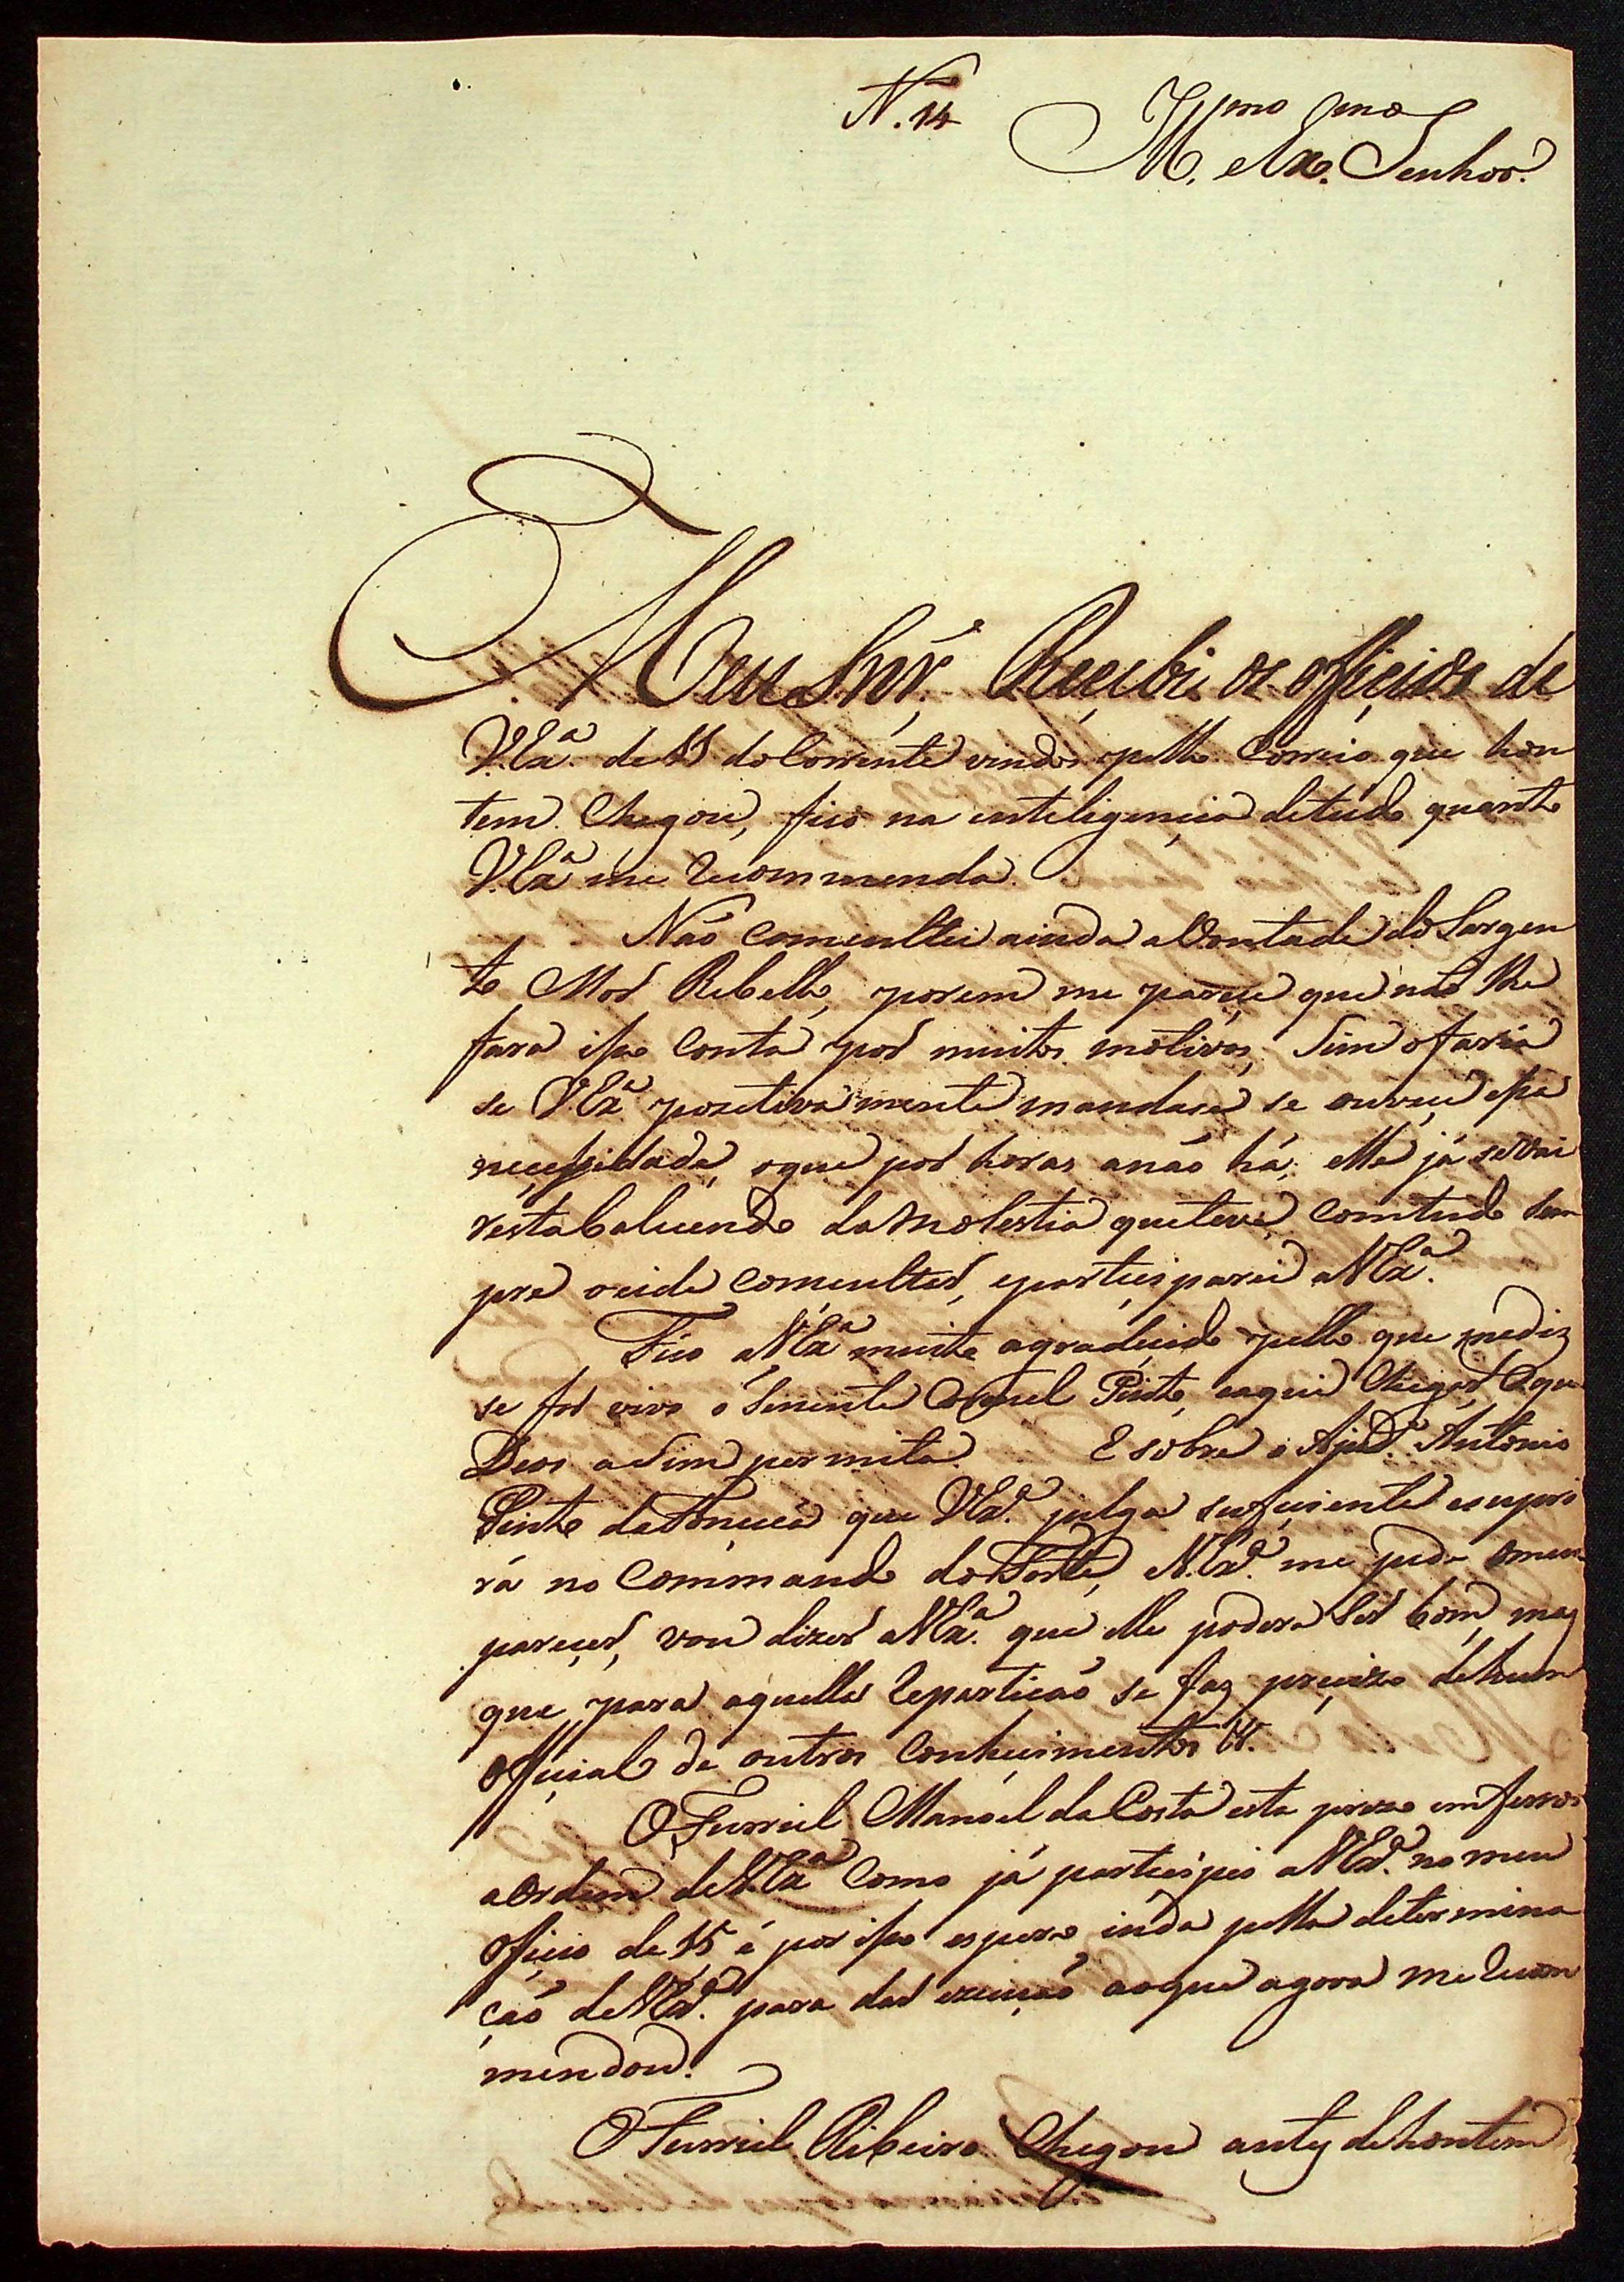 N. 14
Ill.mo e Ex.mo Senhor.
Meu Snr. Recebi os officios de
V.Ex.a de 11 do Corrente vindos pello Correio que hon
tem Chegou, fico na inteligencia de tudo quanto
V.Ex.a me recommenda.
Não comcultei ainda a Vontade do Sargen
to Mor Rebello, porem me parece que não lhe
fara isso Conta por muitos motivos, Sim o faria
se V.Ex.a pozetivamente mandase se ouvece essa
necessidade, o que por horas a não há; elle já se vai
restabalecendo da Molestia que teve, Comtudo sem
pre o eide comcultar, e partecipárei a V.Ex.a
Fico a V.Ex.a muito agradecido pello que me diz
se for vivo o Tenente Coronel Pinto, e aqui Chegar, o que
Deos asim permita. E sobre o Ajud.e Antonio
Pinto da Fonceca que V.Ex.a julga suficiente e supri
rá no Commando do Forte, V.Ex.a me pede o meu
parecer, vou dizer a V.Ex.a que elle podera ser bom, mas
que para aquella repartição se faz precizo de hum
official de outros Conhecimentos &.
O Furriel Manoel da Costa esta prezo em ferros
a Ordem de V.Ex.a Como já partecipei a V.Ex.a no meu
officio de 15 é por isso espero inda pella determina
ção de V.Ex.a para dar execução ao que agora me recom
mendou.
O Furriel Ribeiro Chegou antes de hontem